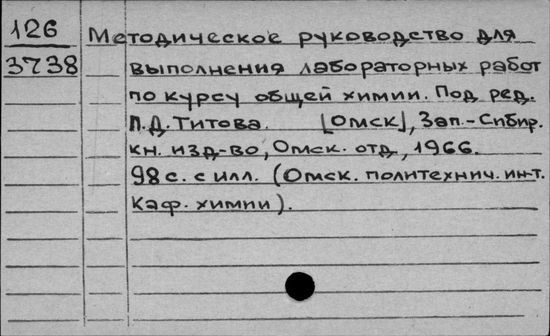 126
3738
Методическое руководство для
выполнения лабораторных работ
по курсу общей химии. Под ред.
П.Д. Титова. [Омск], Зап.-Сибир.
кн. изд-во, Омск. отд, 1966.
98 с. с илл. (Омск. политехнич. ин-т.
Каф. химии).